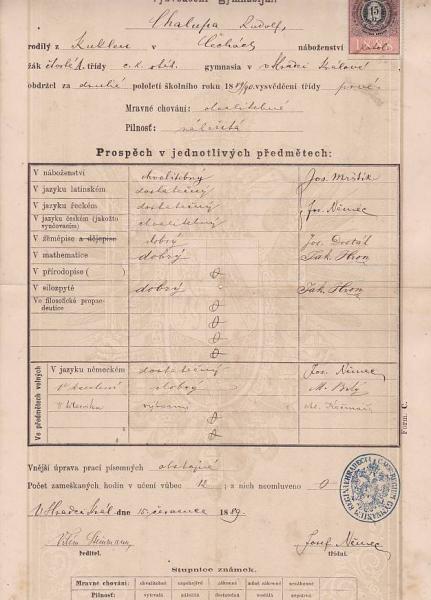 Vysvědčení gymnasijní.
Chalupa Rudolf,
rodilý z Kuklen v Čechách náboženství katol.
žák čtvrté A. třídy c. k. stát. gymnasia v Hradci Králové
obdržel za druhé pololetí školního roku 1889/90. vysvědčení třídy prvé.
Mravné chování: chvalitebné
Pilnosť: náležitá
Prospěch v jednotlivých předmětech:
V náboženství chvalitebný Jos. Mrštík
V jazyku latinském dostatečný
V jazyku řeckém dostatečný Jos. Němec
V jazyku českém (jakožto vyučovacím) chvalitebný
V zeměpise a dějepise dobrý Jos. Dostál
V mathematice dobrý Jak. Hron
V přírodopise ( )
V silozpytě dobrý Jak. Hron
Ve filosofické propaedeutice
Ve předmětech volných
V jazyku německém dostatečný Jos. Němec
V kreslení dobrý M. Bílý
výborný
Vnější úprava prací písemných
Počet zameškaných hodin v učení vůbec 12; a nich neomluveno 0
V Hradci Král. dne 15. července 1889.
ředitel. Josef Němec
třídní.
Form. C.
Stupnice známek.
Mravné chování: chvalitebné uspokojivé zákonné méně zákonné nezákonné
Pilnosť: vytrvalá náležitá dostatečná nestálá nepatrná
15